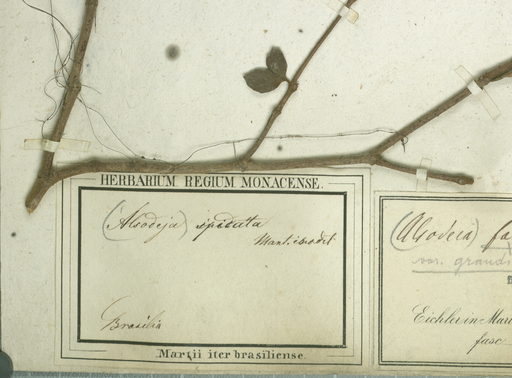 HERBARIUM REGIUM MONACENSE.
(Alsodeja)
Brasilia
Martii iter brasiliense.
(Alsodeia)
var. grandi
Eichler in Mar
fasc